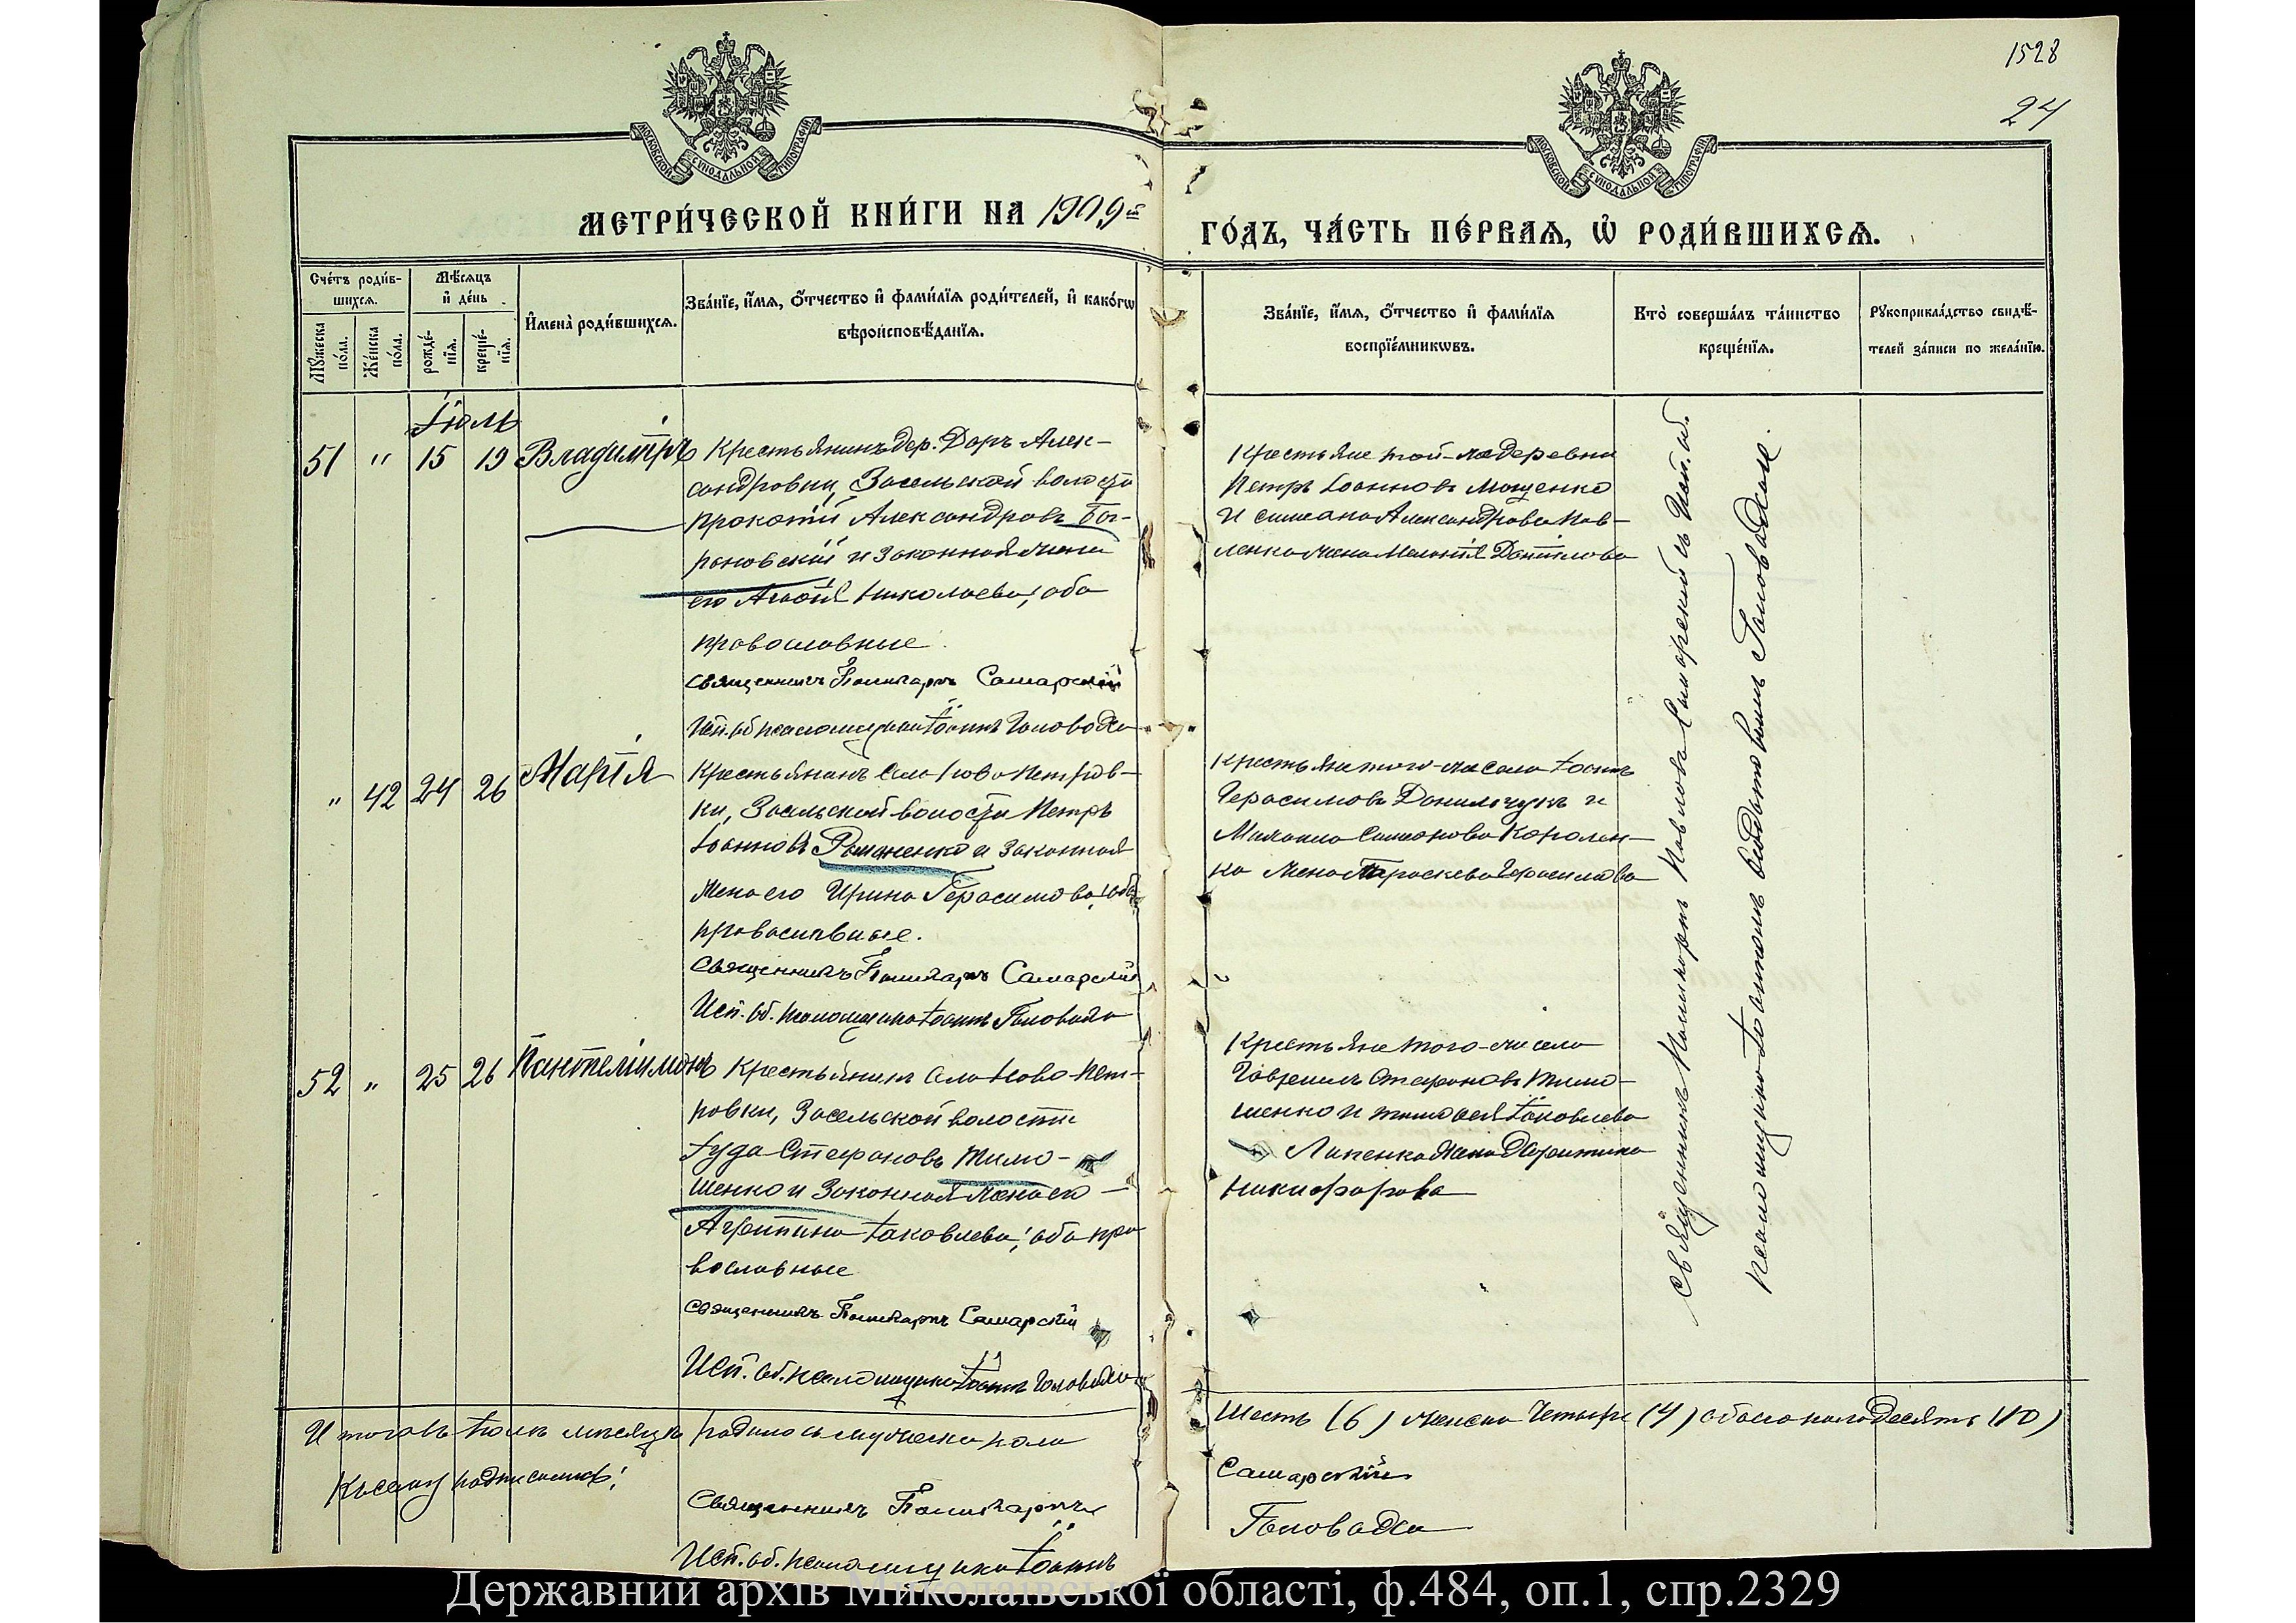 1528
24
МОСКОВСКОЙ СѴНОДАЛЬНОЙ ТИПОГРАФІИ
МОСКОВСКОЙ СѴНОДАЛЬНОЙ ТИПОГРАФІИ
МЕТРИ́ЧЕСКОЙ КНИ́ГИ НА 1909й
ГО́ДЪ, ЧА́СТЬ ПЕ́РВАѦ, Ѡ РОДИ́ВШИХСѦ.
Сче́тъ роди́в-
шихсѧ.
Мѣ́сѧцъ
и де́нь
Мꙋ́жеска по́ла.
Же́нска по́ла.
рожде́-
нїѧ.
креще́-
нїѧ.
И҆мена̀ роди́вшихсѧ.
Зва́нїе, и҆́мѧ, ѻ҆́тчество и҆ фами́лїѧ роди́телей, и҆ како́гѡ
вѣроисповѣ́данїѧ.
Зва́нїе, и҆́мѧ, ѻ҆́тчество и҆ фами́лїѧ
воспрїе́мникѡвъ.
Кто̀ соверша́лъ та́инство
креще́нїѧ.
Рꙋкоприкла́дство свидѣ́-
телей за́писи по жела́нїю.
Іюль
51 " 15 19 Владиміръ
Крестьянинъ дер. Доръ Алек-
сандровки, Засельской волости
Прокопій Александровъ Ба-
рановскій и законная жена
его Агафія Николаева, оба
православные
Священникъ Поликарпъ Самарскій
Исп. об. псаломщика Іоаннъ Головадха
Крестьяне той-же деревни
Петръ Іоанновъ Мощенко
и Александрова Пав-
ленко жена Данилова
" 42 24 26 Марія
Крестьянинъ села Ново Петров-
ки, Засельской волости Петръ
Іоанновъ Романенко и законная
жена его Ирина Герасимова, оба
православные.
Священникъ Поликарпъ Самарскій
Исп. об. псаломщика Іоаннъ Головадха
Крестьяне того-же села Іоаннъ
Герасимовъ Данильчукъ и
Михаила Симонова Королен-
ка жена Параскева Герасимова
52 " 25 26 Пантелиимонъ
Крестьянинъ села Ново-Пет-
ровки, Засельской волости
Іуда Стефановъ Тимо-
шенко и законная жена его
Агрипина Іаковлева, оба пра
вославные
Священникъ Поликарпъ Самарскій
Исп. об. псаломщика Іоаннъ Головадха
Крестьяне того-же села
Гавріилъ Стефановъ Тимо-
шенко и Іаковлева
Лапенка жена
Никифорова
Священникъ Поликарпъ Павловъ Самарскій съ Исп. об.
псаломщика Іоанномъ Головадхою.
Итого въ Іюлѣ мѣсяцѣ родилось мужеска пола
Шесть (6) женска Четыре (4) обоего пола Десять (10)
Къ сему подписались:
Священникъ Поликарпъ
Самарскій
Исп. об. псаломщика Іоаннъ
Головадха
Державний архів Миколаївської області, ф.484, оп.1, спр.2329